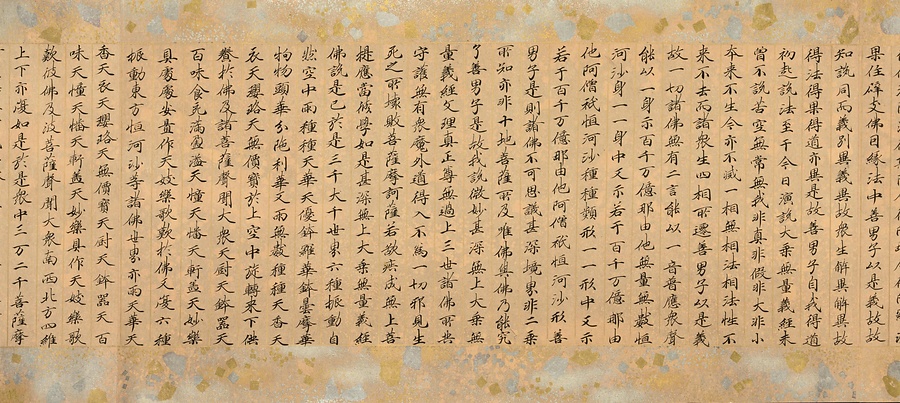 果住辟支佛因緣法中善男子以是義故故
知說同而義別異義異故眾生解異解異故
得法得果得道亦異是故善男子自我得道
初起說法至于今日演說大乘無量義經未
曾不說苦空無常無我非真非假非大非小
本來不生今亦不滅一相無相法相法性不
來不去而諸眾生四相所遷善男子以是義
故一切諸佛無有二言能以一音普應眾聲
能以一身示百千万億那由他無量無數恒
河沙身一一身中又示若干百千万億那由
他阿僧祇恒河沙種種類形一一形中又示
若干百千万億那由他阿僧祇恒河沙形善
男子是則諸佛不可思議甚深境界非二乘
所知亦非十地菩薩所及唯佛與佛乃能究
了善男子是故我說微妙甚深無上大乘無
量義經文理真正尊無過上三世諸佛所共
守護無有眾魔外道得入不為一切邪見生
死之所壞敗菩薩摩訶薩若欲疾成無上菩
提應當修學如是甚深無上大乘無量義經
佛說是已於是三千大千世界六種振動自
然空中雨種種天華天優鉢羅華鉢曇摩華
拘物頭華分陀利華又雨無數種種天香天
衣天瓔珞天無價寶於上空中旋轉來下供
養於佛及諸菩薩聲聞大眾天厨天鉢器天
百味食充滿盈溢天幢天幡天軒蓋天妙樂
具處處安置作天妓樂歌歎於佛又復六種
振動東方恒河沙等諸佛世界亦雨天華天
香天衣天瓔珞天無價寶天厨天鉢器天百
味天幢天幡天軒蓋天妙樂具作天妓樂歌
歎彼佛及彼菩薩聲聞大眾南西北方四維
上下亦復如是於是眾中三万二千菩薩摩